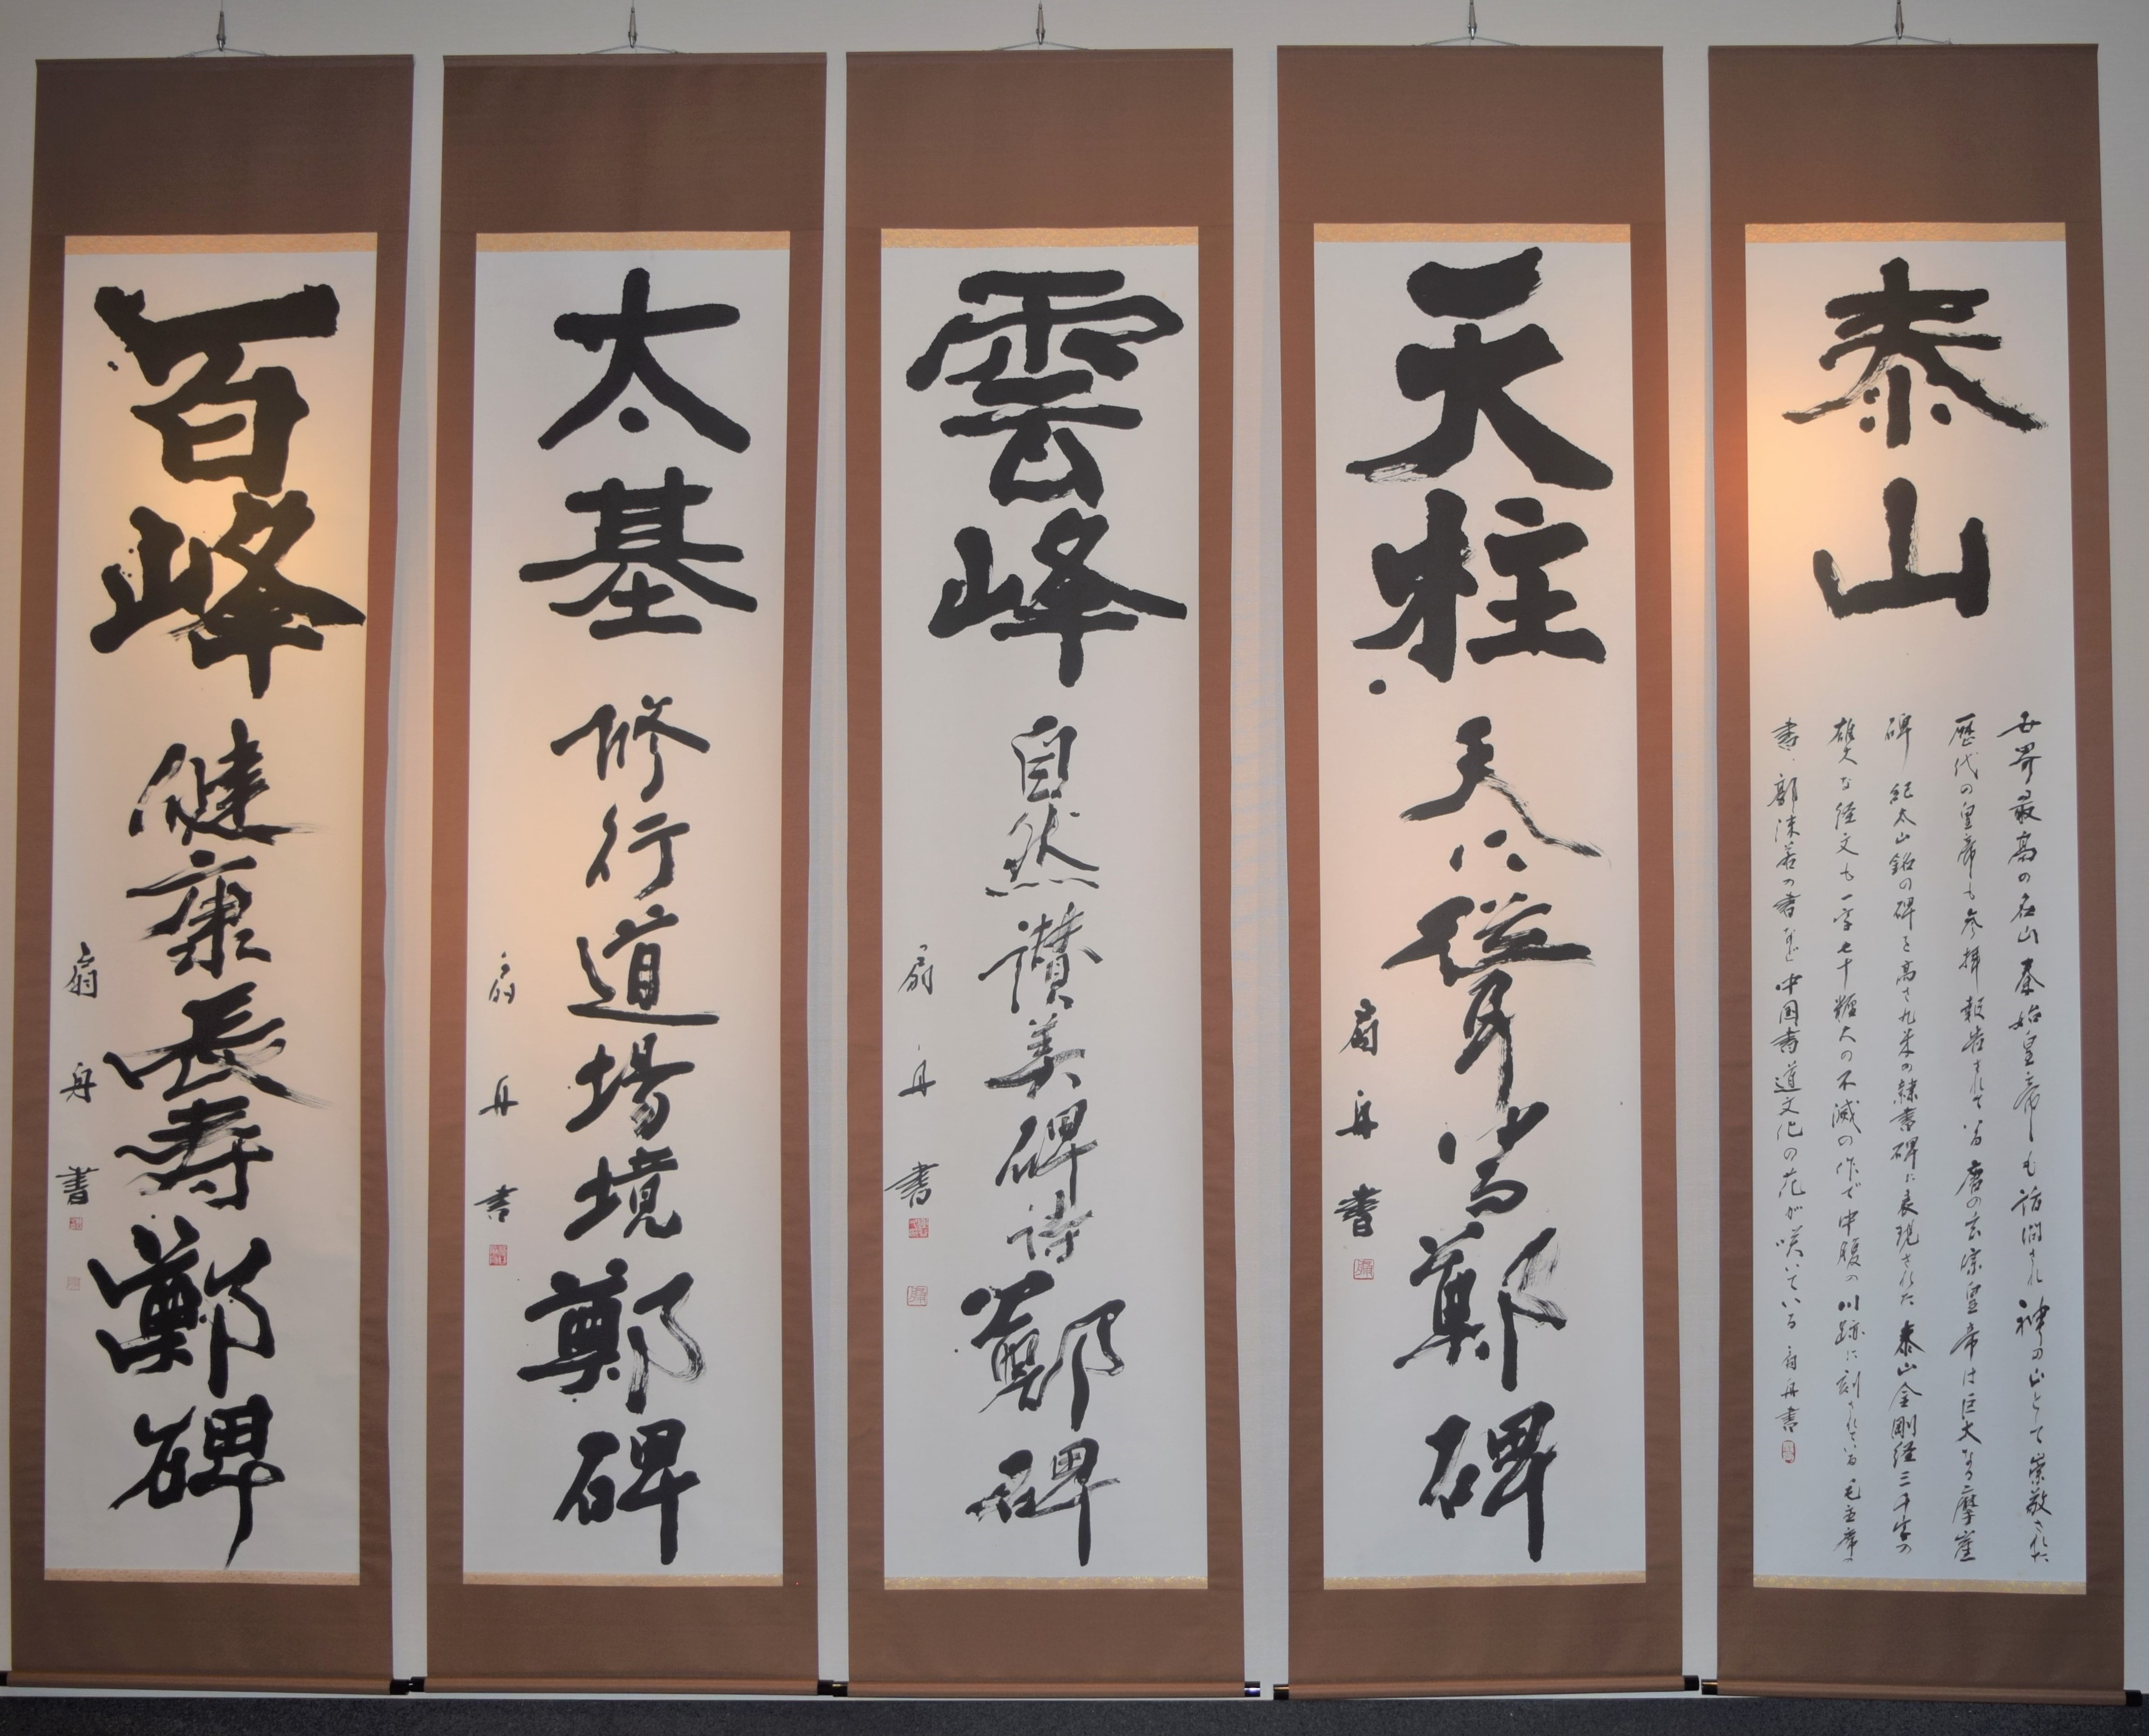 泰山
世界最高の名山秦始皇帝も訪問され神の山として崇敬された
歴代の皇帝も参拝報告されている唐の玄宗皇帝は巨大なる摩崖
碑 紀太山銘の碑を高さ九米の隷書碑に表現された泰山金剛経三千字の
雄大な経文も一字七十糎大の不滅の作で中腹の川跡に刻されている毛主席の
書、郭沫若の書など中国書道文化の花が咲いている 扇舟書
天柱
天に聳える鄭碑
扇舟書
雲峰
自然讃美碑詩鄭碑
扇舟書
太基
修行道場境鄭碑
扇舟書
百峰
健康長寿鄭碑
扇舟書